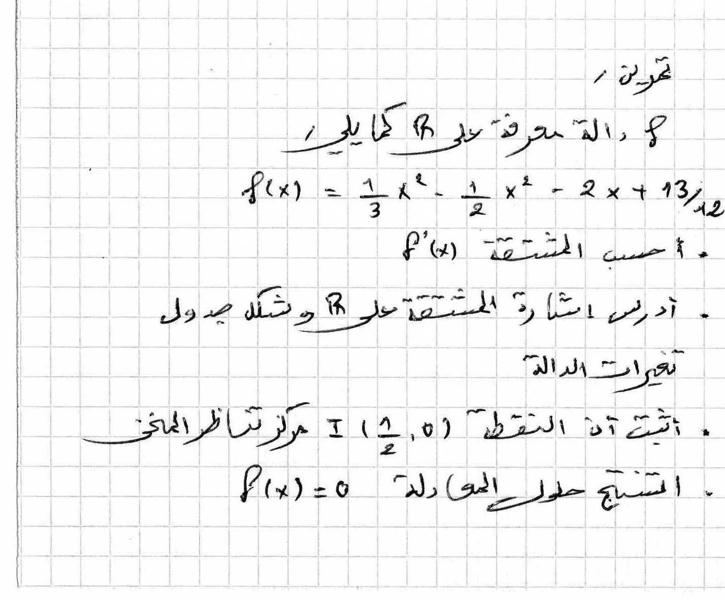 تمرين /
f دالة معرفة على R كما يلي /
f(x) = 1/3 x² - 1/2 x² - 2x + 13/12
. أحسب المشتقة f'(x)
. أدرس إشارة المشتقة على R وشكل جدول
تغيرات الدالة
. أثبت أن النقطة I (1/2, 0) مركز تناظر المنحنى
. استنتج حلول المعادلة f(x) = 0